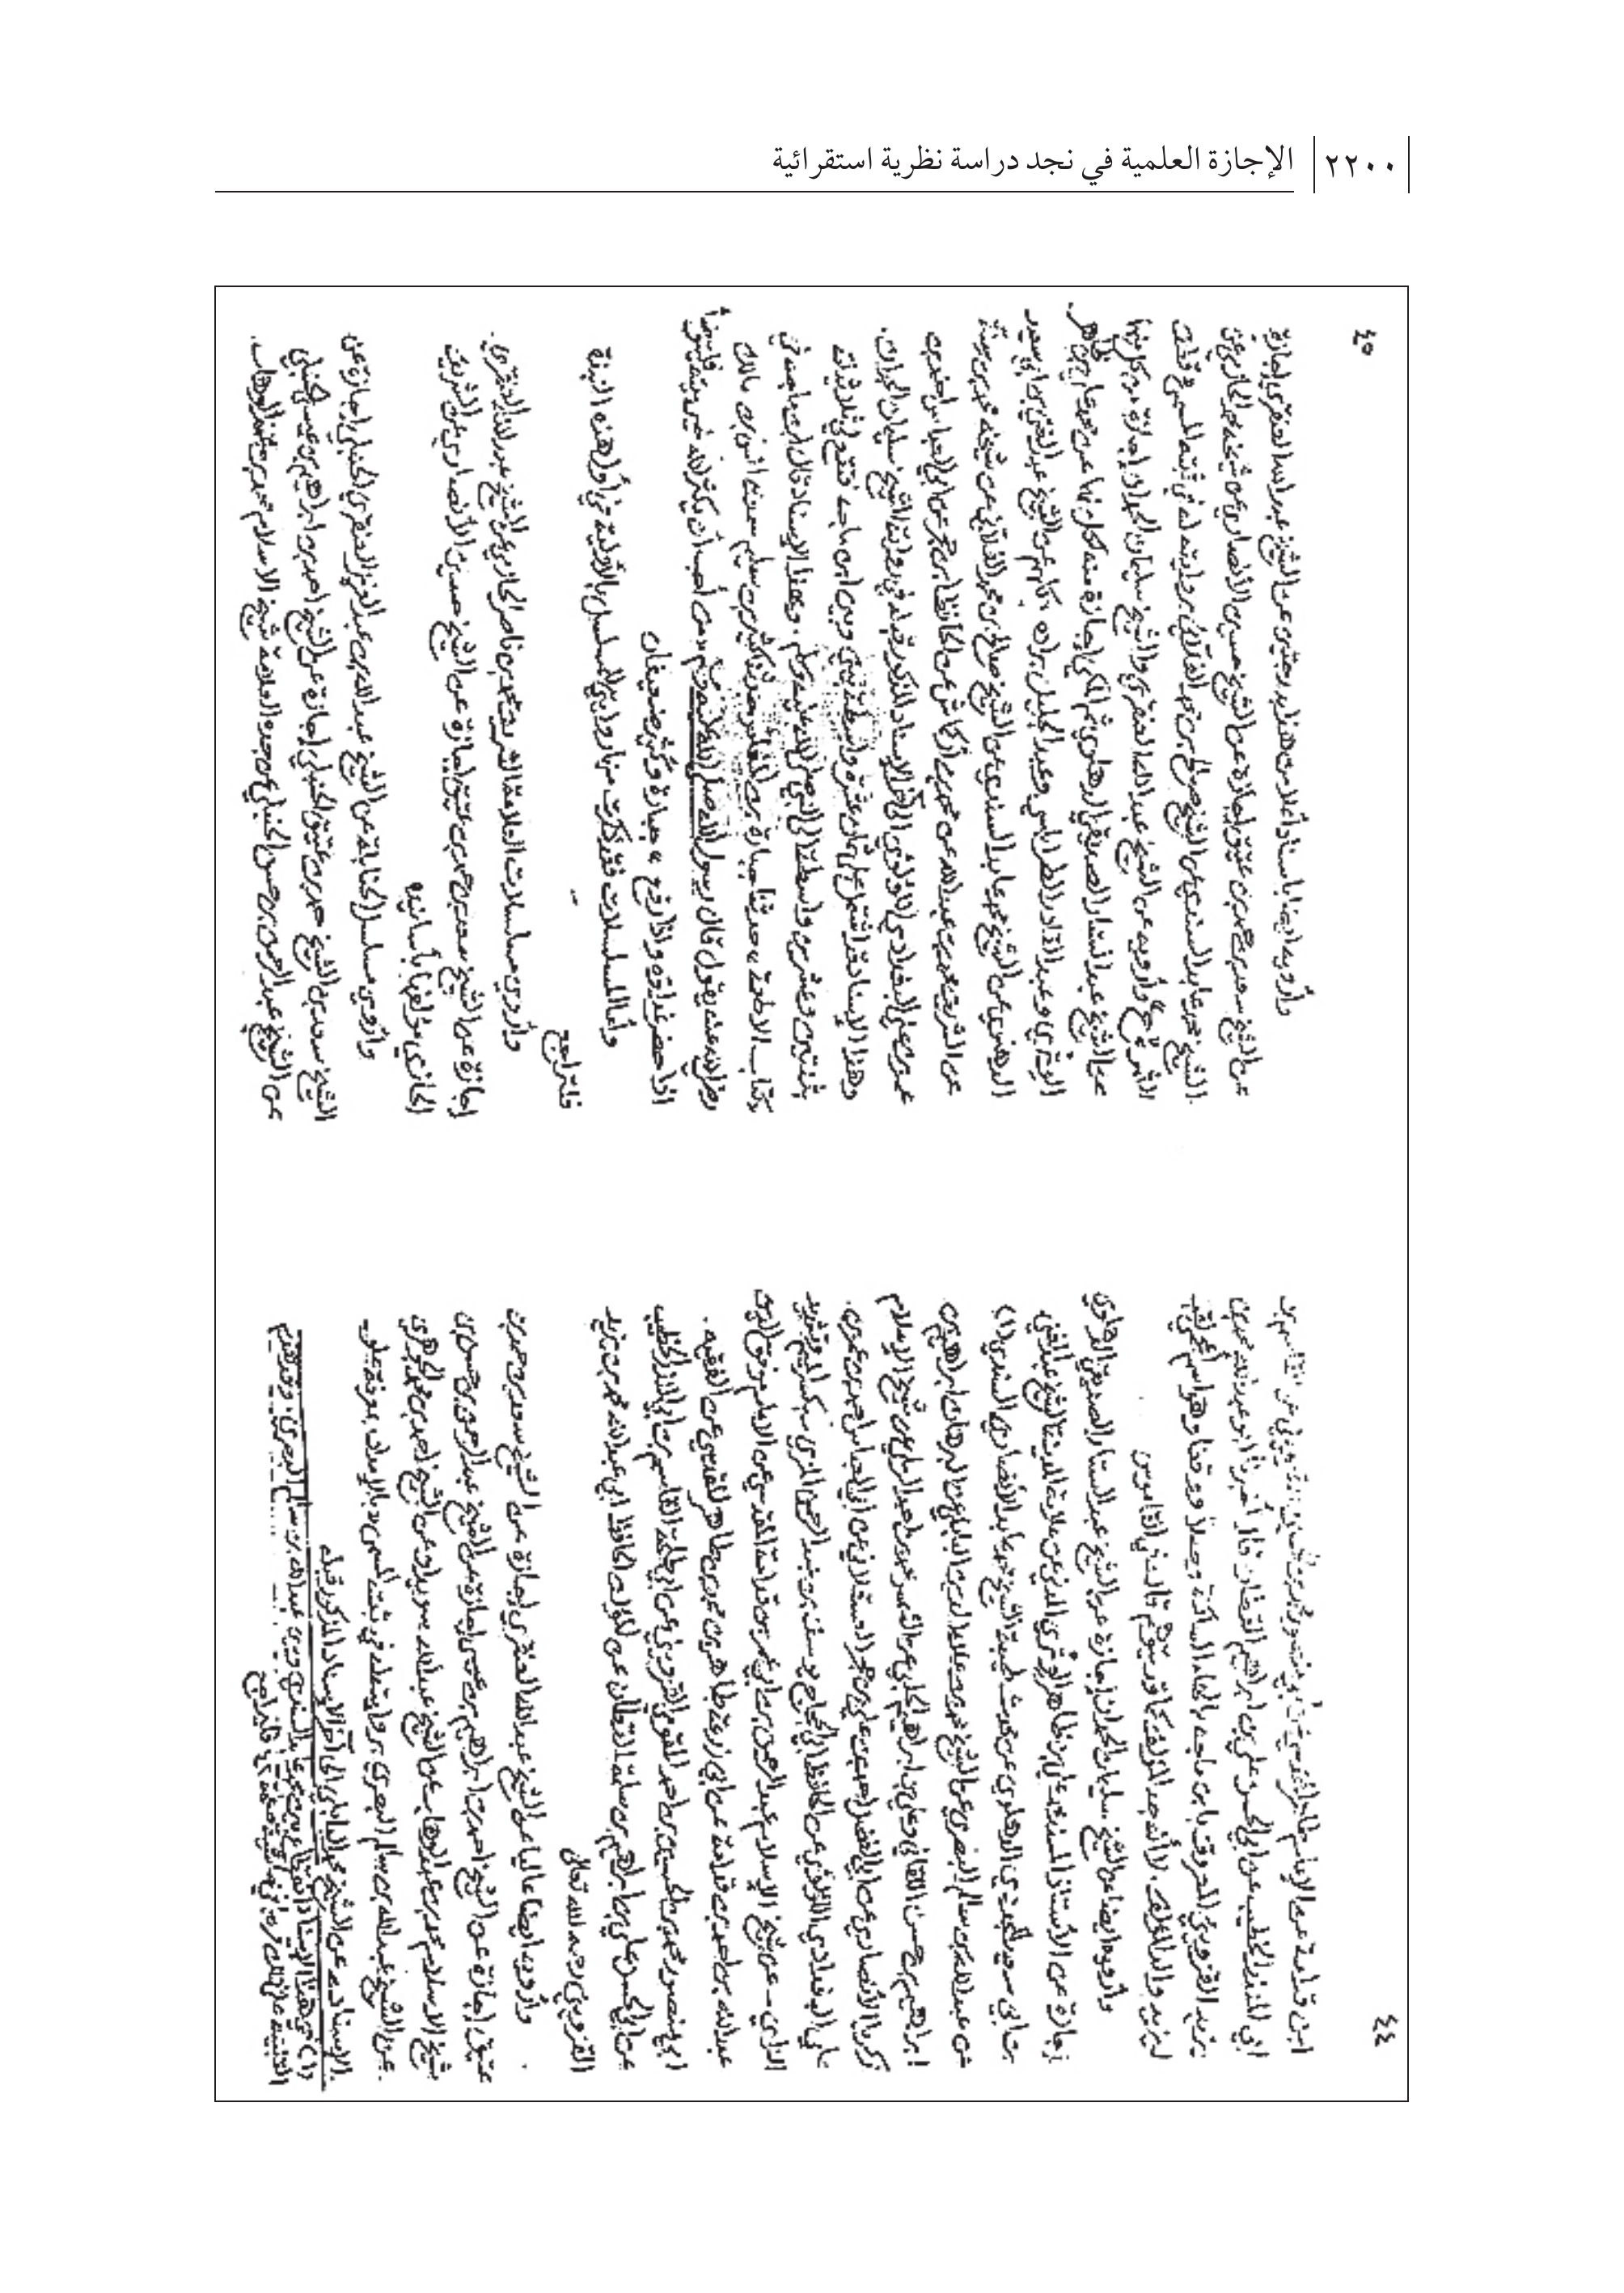 ٢٢٠٠ الإجازة العلمية في نجد دراسة نظرية استقرائية
٤٤
ابن قدامة عن الإمام
ابي المنذر الخطيب عن ابي الحسن علي بن ابراهيم القطان قال أخبرنا ابو عبدالله محمد بن
يزيد القزويني المعروف بابن ماجه بالهاء الساكنة وصلاً ووقفاً وهو اسم
ليزيد والد المؤلف، لا أنه جد المؤلف كما قد يتوهم قاله في القاموس
وأرويه ايضا عن الشيخ سليمان الحمدان إجازة عن الشيخ عبد الستار الصديقي الدهلوي
إجازة عن الأستاذ المسند علي بن ظاهر الوتري المدني عن علامة المدينة الشيخ عبد الغني
بن ابي سعيد المجددي الدهلوي عن محدث طيبة الشيخ محمد عابد الأنصاري السندي (١)
عن عبدالله بن سالم البصري عن الشيخ محمد بن علاء الدين البابلي عن البرهان ابراهيم بن
ابراهيم بن حسن اللقاني وعلي بن ابراهيم الحلبي عن الشمس محمد بن احمد الرملي عن شيخ الإسلام
زكريا الأنصاري عن ابي الفضل احمد بن علي بن حجر العسقلاني عن ابي العباس احمد بن عمر بن
علي البغدادي اللؤلؤي عن الحافظ ابي الحجاج يوسف بن عبد الرحمن المزي
الرازي - عن شيخ الإسلام عبد الرحمن بن ابي عمر بن قدامة المقدسي عن الإمام موفق الدين
عبدالله بن احمد بن قدامة عن ابي زرعة طاهر بن محمد بن طاهر المقدسي عن الفقيه
ابي منصور محمد بن الحسين بن احمد المقومي القزويني عن ابي طلحة القاسم بن ابي المنذر الخطيب
عن ابي الحسن علي بن ابراهيم بن سلمة القطان عن مؤلفه الحافظ ابي عبدالله محمد بن يزيد
القزويني رحمه الله تعالى
وأرويه ايضا عاليا عن الشيخ عبدالله العنقري إجازة عن الشيخ سعد بن حمد بن
عتيق إجازة عن الشيخ احمد بن ابراهيم بن عيسى إجازة عن الشيخ عبد الرحمن بن حسن بن
شيخ الاسلام محمد بن عبد الوهاب عن الشيخ عبدالله سويدان عن الشيخ احمد بن محمد الجوهري
عن الشيخ عبدالله بن سالم البصري بروايته له في ثبته المسمى بالإمداد بمعرفة علو
الإسناد عن الشيخ محمد البابلي الى آخر الإسناد المذكور قبله
(١) في هذا الإسناد انقطاع بين محمد عابد السندي وبين عبدالله بن سالم البصري
٤٥
وأرويه ايضا باسناد أعلا من هذا بدرجتين عن الشيخ عبدالله العنقري إجازة
عن الشيخ سعد بن حمد بن عتيق إجازة عن الشيخ حسين الأنصاري عن شيخه محمد الحازمي عن
الشيخ محمد عابد السندي عن الشيخ صالح بن محمد الفلاني بروايته له في ثبته المسمى قطف
الثمر (ح) وأرويه عن الشيخ عبدالله العنقري والشيخ سليمان الحمدان إجازة من كل منهما
عن الشيخ عبد الستار الصديقي الدهلوي ثم المكي إجازة منه لكل منهما عن محمد علي بن ظاهر
الوتري وعبد القادر الطرابلسي وعبد الجليل براده كلهم عن الشيخ عبد الغني بن ابي سعيد
الدهلوي عن الشيخ محمد عابد السندي عن الشيخ صالح بن محمد الفلاني عن شيخه محمد بن سنة
عن الشريف محمد بن عبدالله عن محمد بن أركماش عن الحافظ ابن حجر عن ابي العباس احمد بن
عمر بن علي البغدادي اللؤلؤي الى آخر الإسناد المذكور قبله في رواية الشيخ سليمان الحمدان.
وهذا الإسناد قد اشتمل على ثمان عشرة واسطة بيني وبين ابن ماجه فتقع لي ثلاثياته
بثنتين وعشرين واسطة الى النبي صلى الله عليه وسلم. وبهذا الإسناد قال ابن ماجه في
كتاب الأطعمة، حدثنا جبارة بن المغلس حدثنا كثير بن سليم سمعت انس بن مالك
رضي الله عنه يقول قال رسول الله صلى الله عليه وسلم من أحب أن يكثر الله خير بيته فليتوضأ
اذا حضر غداؤه واذا رفع» جبارة وكثير ضعيفان
وأما المسلسلات فقد ذكرت منها روايتي للمسلسل بالأولية في أول هذه النبذة
فلتراجع
وأروي مسلسلات العلامة الشريف محمد بن ناصر الحازمي عن الشيخ عبدالله العنقري
إجازة عن الشيخ سعد بن حمد بن عتيق إجازة عن الشيخ حسين الأنصاري عن الشريف
الحازمي مؤلفها بأسانيده
وأروي مسلسل الحنابلة عن الشيخ عبدالله بن عبد العزيز العنقري الحنبلي إجازة عن
الشيخ سعد بن الشيخ حمد بن عتيق الحنبلي إجازة عن الشيخ احمد بن ابراهيم بن عيسى الحنبلي
عن الشيخ عبد الرحمن بن حسن الحنبلي عن جده العلامة شيخ الاسلام محمد بن عبد الوهاب